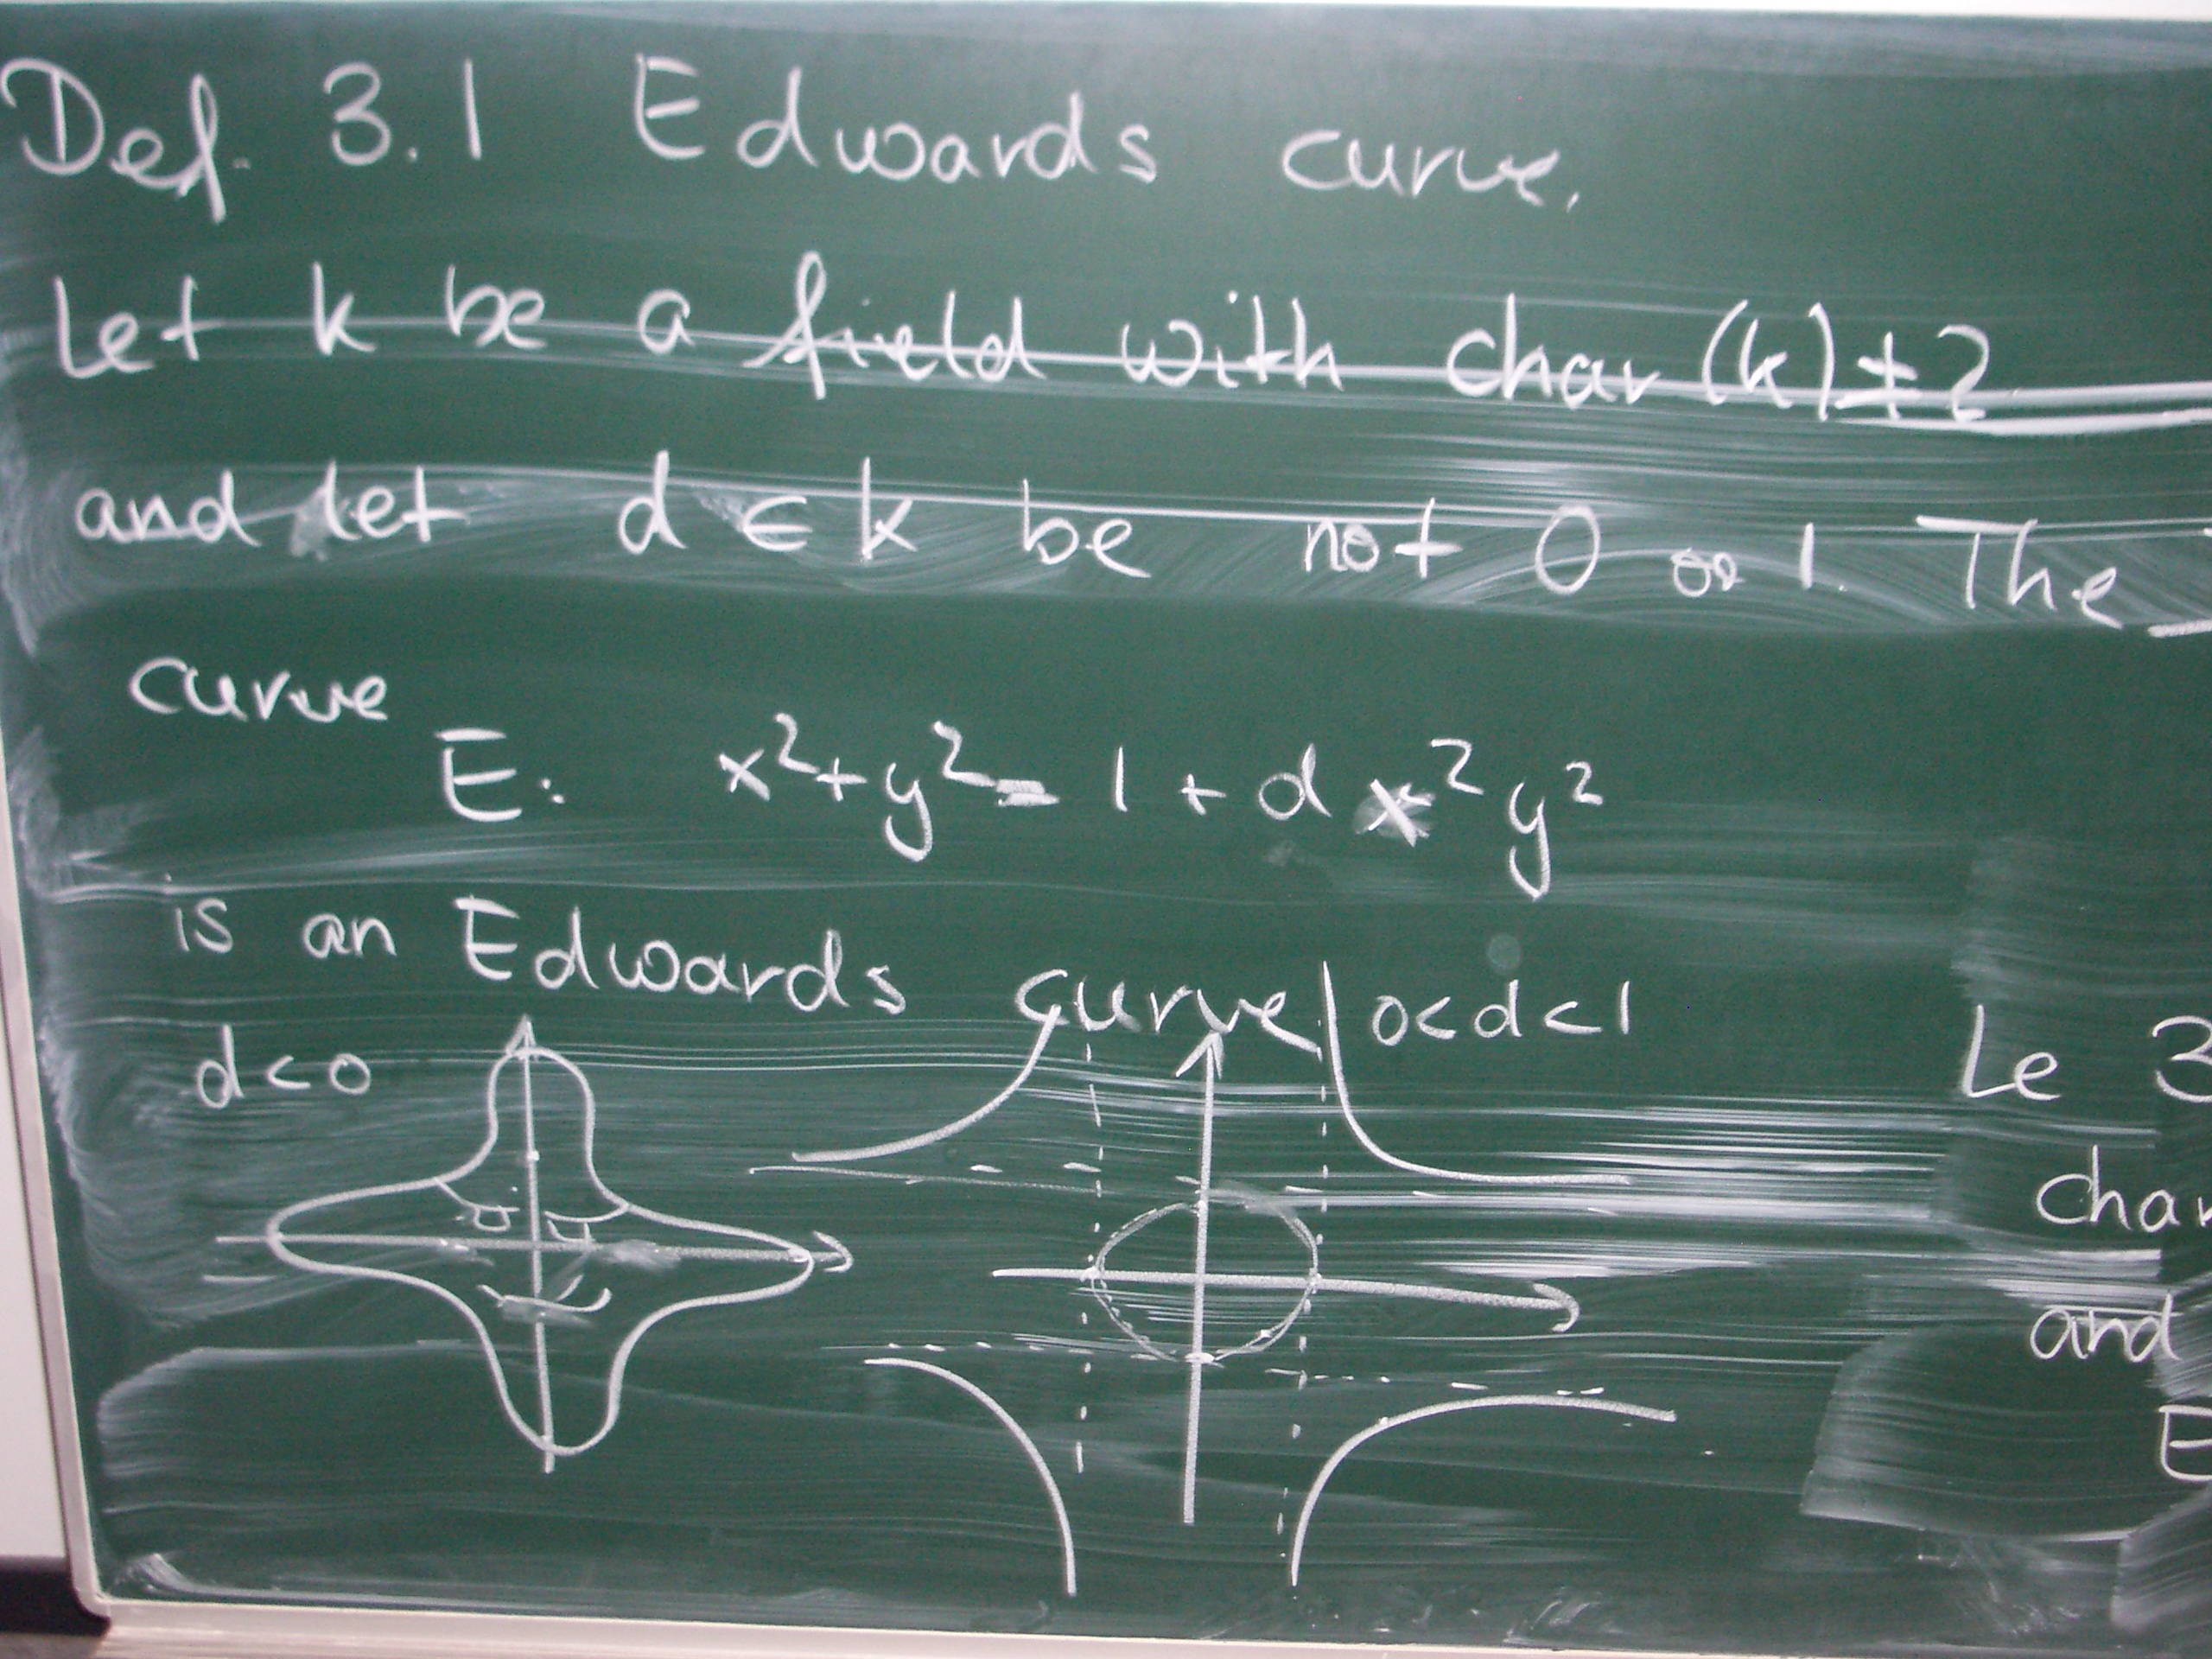 Def. 3.1 Edwards curve.
Let k be a field with char(k) ≠ 2
and let d ∈ k be not 0 or 1. The
curve
E: x² + y² = 1 + d x² y²
is an Edwards curve
d<0
0<d<1
Le 3
char
and
E